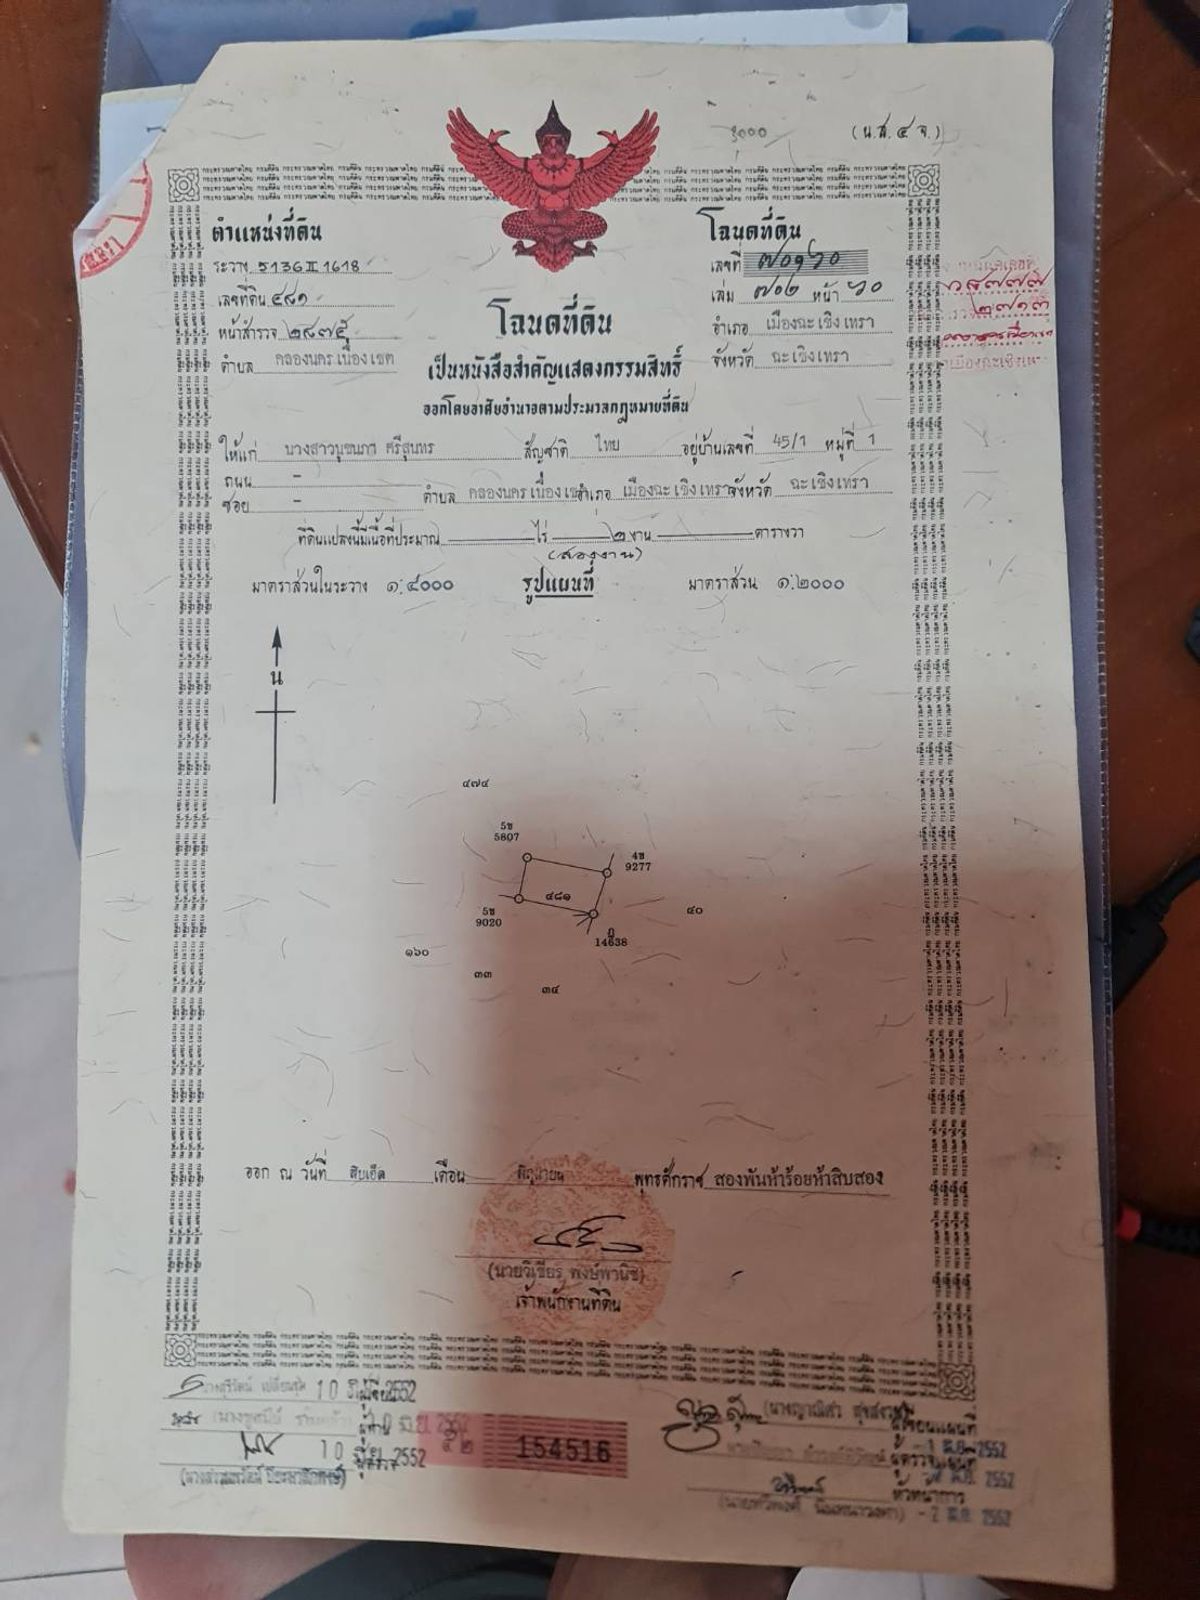 (น.ส.๔ จ.)
ตำแหน่งที่ดิน
ระวาง 5136 II 1618
เลขที่ดิน ๔๘๑
หน้าสำรวจ ๒๘๗๕
ตำบล คลองนครเนื่องเขต
โฉนดที่ดิน
เลขที่ ๗๐๑๖๐
เล่ม ๗๐๒ หน้า ๖๐
อำเภอ เมืองฉะเชิงเทรา
จังหวัด ฉะเชิงเทรา
โฉนดที่ดิน
เป็นหนังสือสำคัญแสดงกรรมสิทธิ์
ออกโดยอาศัยอำนาจตามประมวลกฎหมายที่ดิน
ให้แก่ นางสาวนุชนภา ศรีสุนทร สัญชาติ ไทย อยู่บ้านเลขที่ 45/1 หมู่ที่ 1
ถนน -
ซอย - ตำบล คลองนครเนื่องเขต อำเภอ เมืองฉะเชิงเทรา จังหวัด ฉะเชิงเทรา
ที่ดินแปลงนี้มีเนื้อที่ประมาณ ไร่ ๒ งาน ตารางวา
(สองงาน)
มาตราส่วนในระวาง ๑:๔๐๐๐ รูปแผนที่ มาตราส่วน ๑:๒๐๐๐
น
๔๗๔
5ช
5807
4ช
9277
๔๘๑
5ช
9020
๔๐
14638
๑๖๐
๓๓
๓๔
ออก ณ วันที่ สิบเอ็ด เดือน มิถุนายน พุทธศักราช สองพันห้าร้อยห้าสิบสอง
(นายวิเชียร พงษ์พานิช)
เจ้าพนักงานที่ดิน
10 2552
154516
10 มิ.ย. 2552
ผู้เขียนแผนที่
ผู้ตรวจแผนที่
หัวหน้าการ
2552